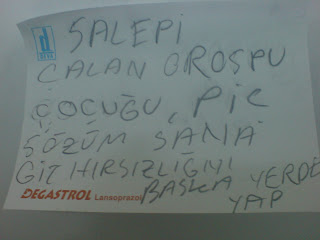 SALEPİ
ÇALAN OROSPU
ÇOCUĞU, PİÇ
SÖZÜM SANA
GİT HIRSIZLIĞIYI
BAŞKA YERDE
YAP
DEGASTROL Lansoprazol